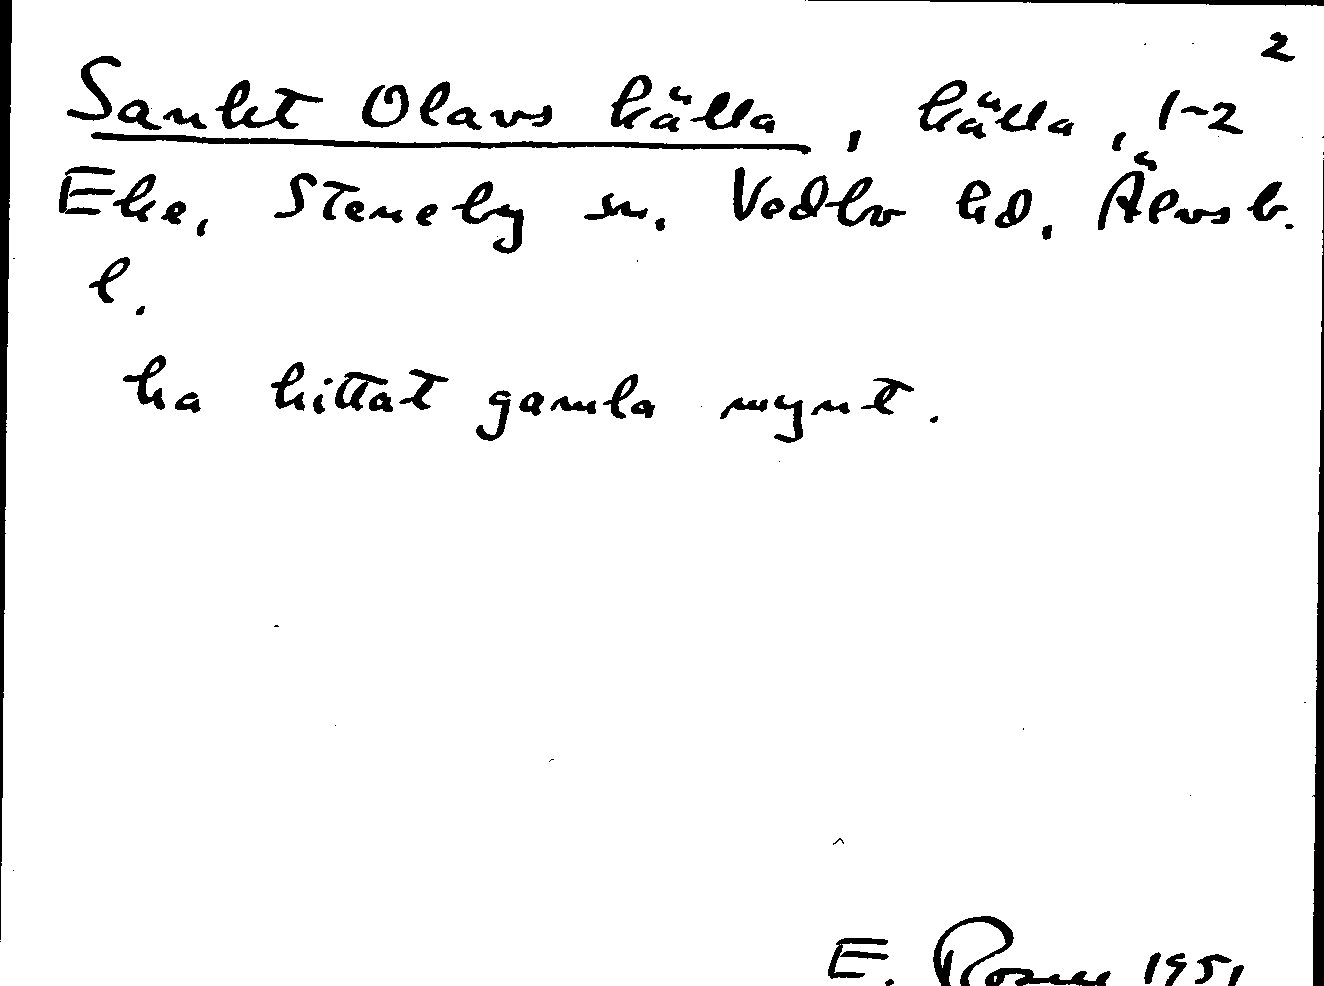 2
Sankt Olavs källa, källa, 1-2
Eke, Steneby sn. Vedbo hd. Älvsb.
l.
ha hittat gamla mynt.
E. Rosell 1951